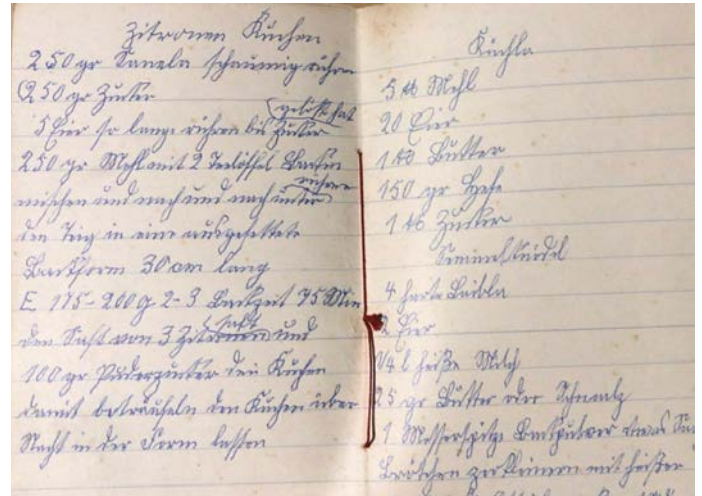 Zitronen Kuchen
250 gr Sanela schaumig rühren
250 gr Zucker
gelöst hat
5 Eier so lange rühren bis Zucker
250 gr Mehl mit 2 Teelöffel Backin
rühren
mischen und nach und nach unter
den Teig in eine ausgefettete
Backform 30 cm lang
E 175-200 g 2-3 Backzeit 75 Min
saft
den Saft von 3 Zitronen und
100 gr Puderzucker den Kuchen
damit beträufeln den Kuchen über
Nacht in der Form lassen
Küchla
5 tb Mehl
20 Eier
1 tb Butter
150 gr Hefe
1 tb Zucker
4 harte Laibla
2 Eier
1/4 l heiße Milch
25 gr Butter oder Schmalz
1 Messerspitze Backpulver etwas
Brötchen mit heißer